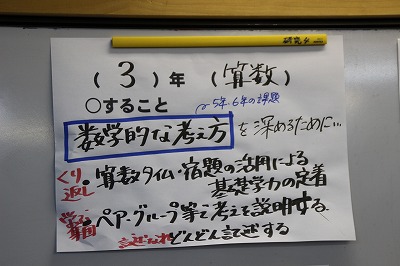 研究
(3)年 (算数)
○すること
5年・6年の課題
数学的な考え方 を深めるために…
くり返し
・算数タイム・宿題の活用による
基礎学力の定着
・ペア、グループ等で考えを説明する。
どんどん記述する